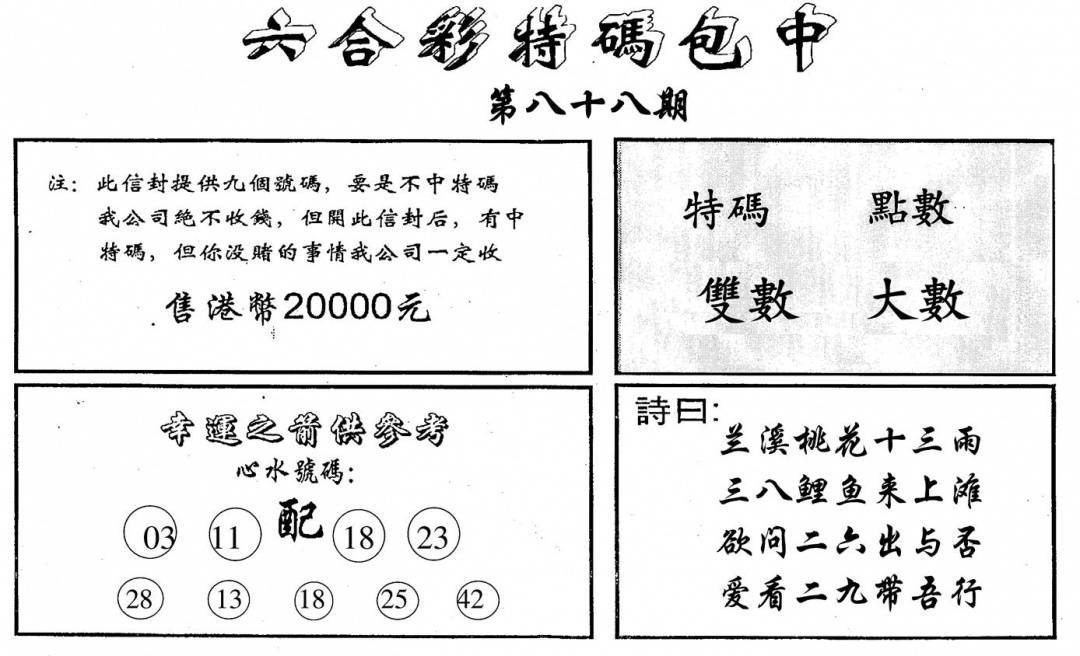 六合彩特碼包中
第八十八期
注：此信封提供九個號碼，要是不中特碼
我公司絕不收錢，但開此信封后，有中
特碼，但你没賭的事情我公司一定收
售港幣20000元
特碼 點數
雙數 大數
幸運之箭供參考
心水號碼：
03 11 配 18 23
28 13 18 25 42
詩曰：
兰溪桃花十三雨
三八鲤鱼来上滩
欲问二六出与否
爱看二九帶吾行